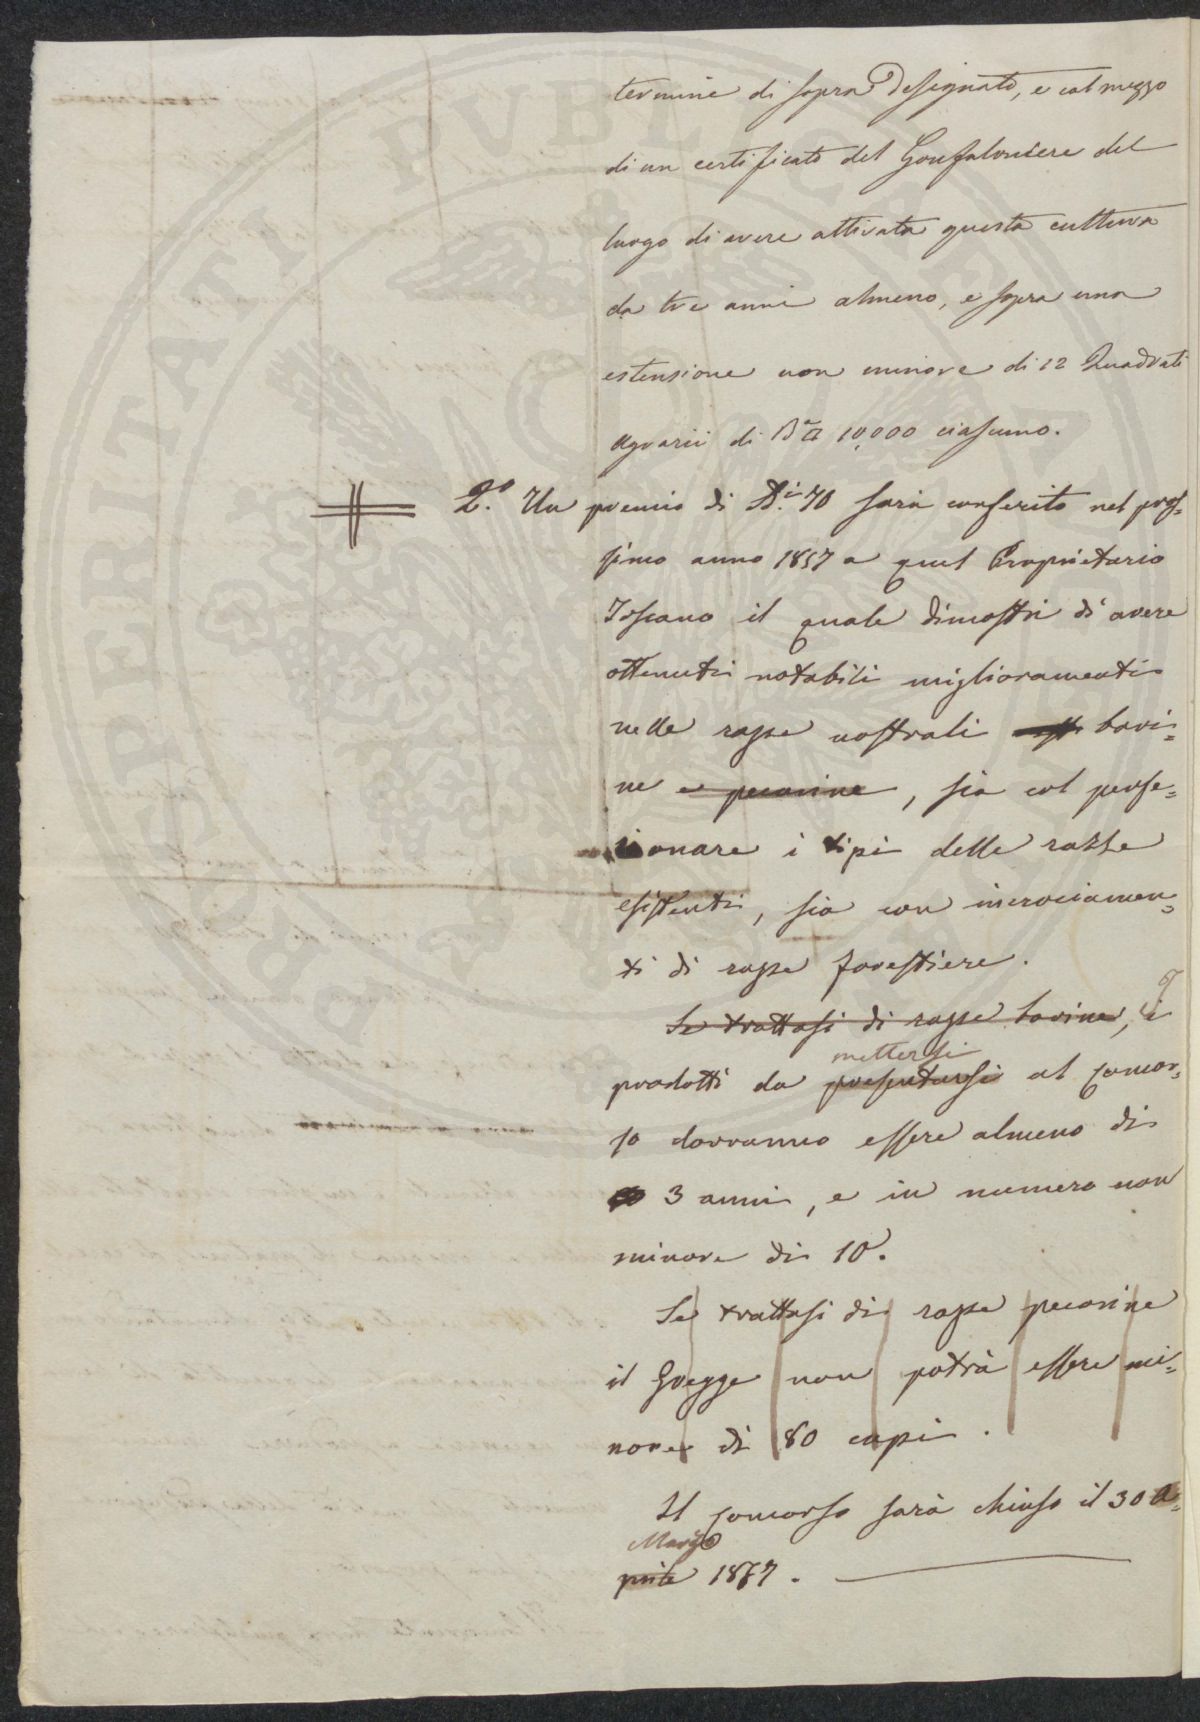 termine di sopra designato, e col mezzo
di un certificato del Gonfaloniere del
luogo di avere attivata questa cultura
da tre anni almeno, e sopra una
estensione non minore di 12 Quadrati
agrarii di B.a 10,000 ciascuno.
2.o Un premio di D.i 70 sarà conferito nel pros=
simo anno 1857 a quel Proprietario
Toscano il quale dimostri di avere
ottenuti notabili miglioramenti
nelle razze nostrali bovi=
ne e pecorine, sia col perfe=
zionare i tipi delle razze
esistenti, sia con incrociamen=
ti di razze forestiere.
Se trattasi di razze bovine, i I
mettersi
prodotti da presentarsi al concor=
so dovranno essere almeno di
3 anni, e in numero non
minore di 10.
Se trattasi di razze pecorine
il Gregge non potrà essere mi=
nore di 80 capi.
Il concorso sarà chiuso il 30 A=
Marzo
prile 1857.
PVBLICAE